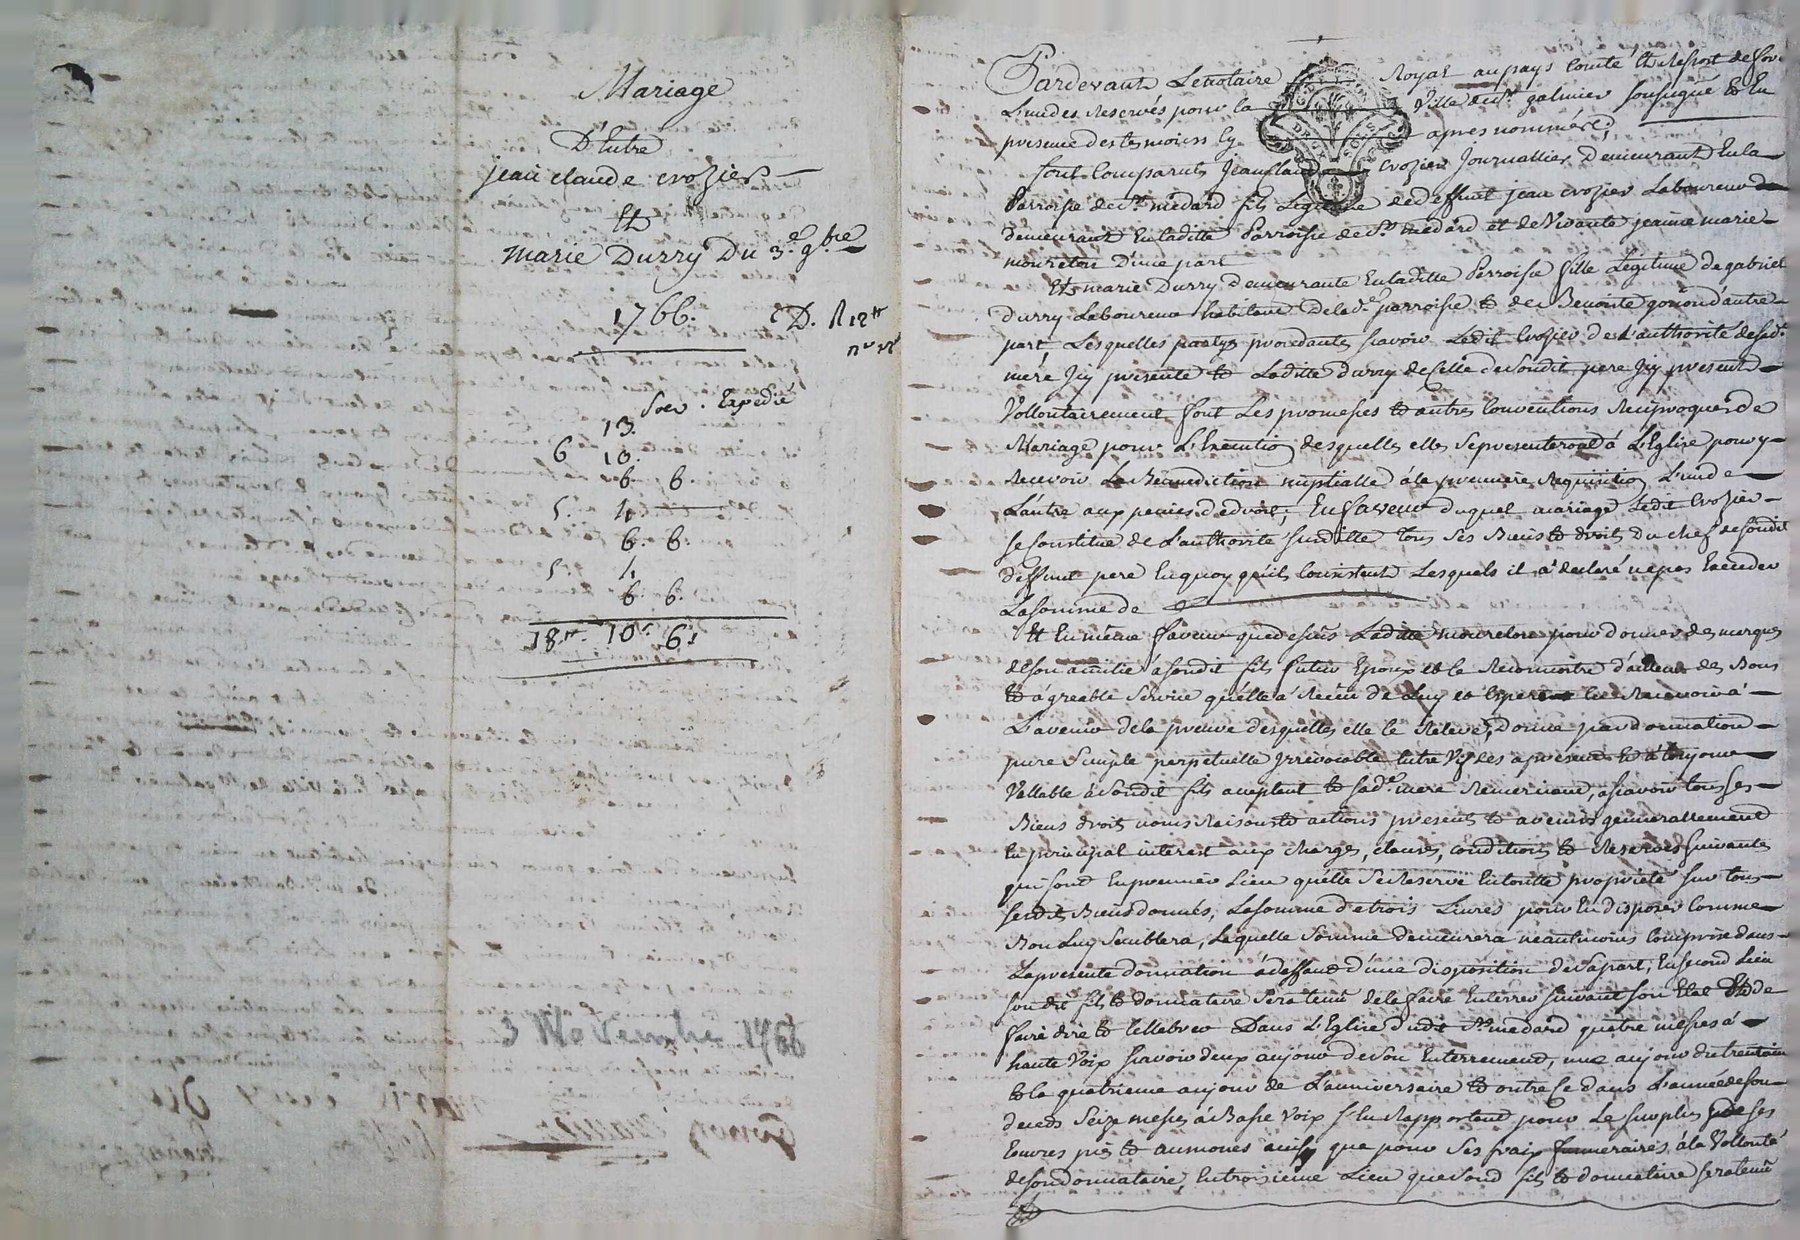 Mariage
D'Entre
jean claude crozier
Et
marie Durry Du 3.e 9.bre
1766.
C D. R 12tt
Soer. Expedié
13.
6 10.
6 6.
5. 4
6. 6.
5. 4
6. 6.
18tt 10s 6d
3 Novembre 1766
Pardevant Le notaire Royal au pays Comté Et Ressort de fore
L'un des Reservés pour la ville de St galmier soussigné Et En
presence des temoins Cy apres nommés;
sont Comparuts Jean Claude Crozier Journallier demeurant En la
Parroisse de St medard fils Legitime de deffunt jean crozier Laboureur
demeurant En laditte Parroisse de St medard et de Vivante jeanne marie
mourelon d'une part
Et marie Durry demeurante En laditte Perroisse fille Legitime de gabriel
durry Laboureur habitant de lad.e parroisse Et de Benoite gonon d'autre
part, Les quelles partyes procedantes scavoir Ledit Crozier de L'authorité de sad.
mere Jcy presente Et Laditte durry de Celle de Sondit pere Jcy present
Vollontairement font Les promesses Et autres Conventions Reciproques de
Mariage pour L'Execution desquelles elles Se presenteront á L'Eglise pour y
Recevoir La Benediction nuptialle á la premiere Requisition L'un de
L'autre aux peines de droit; En faveur duquel mariage Ledit Crozier
se Constitue de L'authorité susditte tous ses Biens Et droits du chef de sondit
deffunt pere En quoy qu'ils Consistent Lesquels il á declaré ne pas Exceder
La somme de
Et En même faveur que dessus Laditte mourelon pour donner des marques
de son amitié á sondit fils futur Epoux et le Reconnoitre d'ailleurs des Bons
Et ágreable Service qu'elle á Receu de Luy et Espere En Recevoir á
L'avenir de la preuve desquelles elle le Releve, Donne par donnation
pure Simple perpetuelle jrrevocable Entre Vifs des apresent Et á toujour
Vallable á Sondit fils acceptant Et sad.e mere Remerciant, ascavoir tous Ses
Biens droits noms Raisons Et actions presents Et avenirs generallement
En principal interest aux charges, clauses, conditions Et Reserves suivantes
qui sont En premier Lieu qu'elle Se Reserve En toutte proprieté sur tous
sesdits Biens donnés, La somme de trois Livres pour En disposer Comme
Bon Luy Semblera, Laquelle Somme demeurera neantmoins Comprise dans
La presente donnation á deffaud d'une disposition de Sa part, En second Lieu
Son dit fils Et donnataire Sera tenu de la faire Enterrer Suivant Son Etat Et de
faire dire Et Cellebrer Dans L'Eglise dudt St medard quatre messes á
haute Voix scavoir deux aujour de Son Enterrement, une aujour du trentain
Et la quatrieme aujour de L'anniversaire Et outre Ce dans L'année de son
deceds Seize messes á Basse Voix S'En Rapportant pour Le surplus de ses
Euvres pies Et aumones ainsy que pour Ses fraix funneraires á la Vollonté
de son donnataire, En troisieme Lieu que Sond fils Et donnataire sera tenu